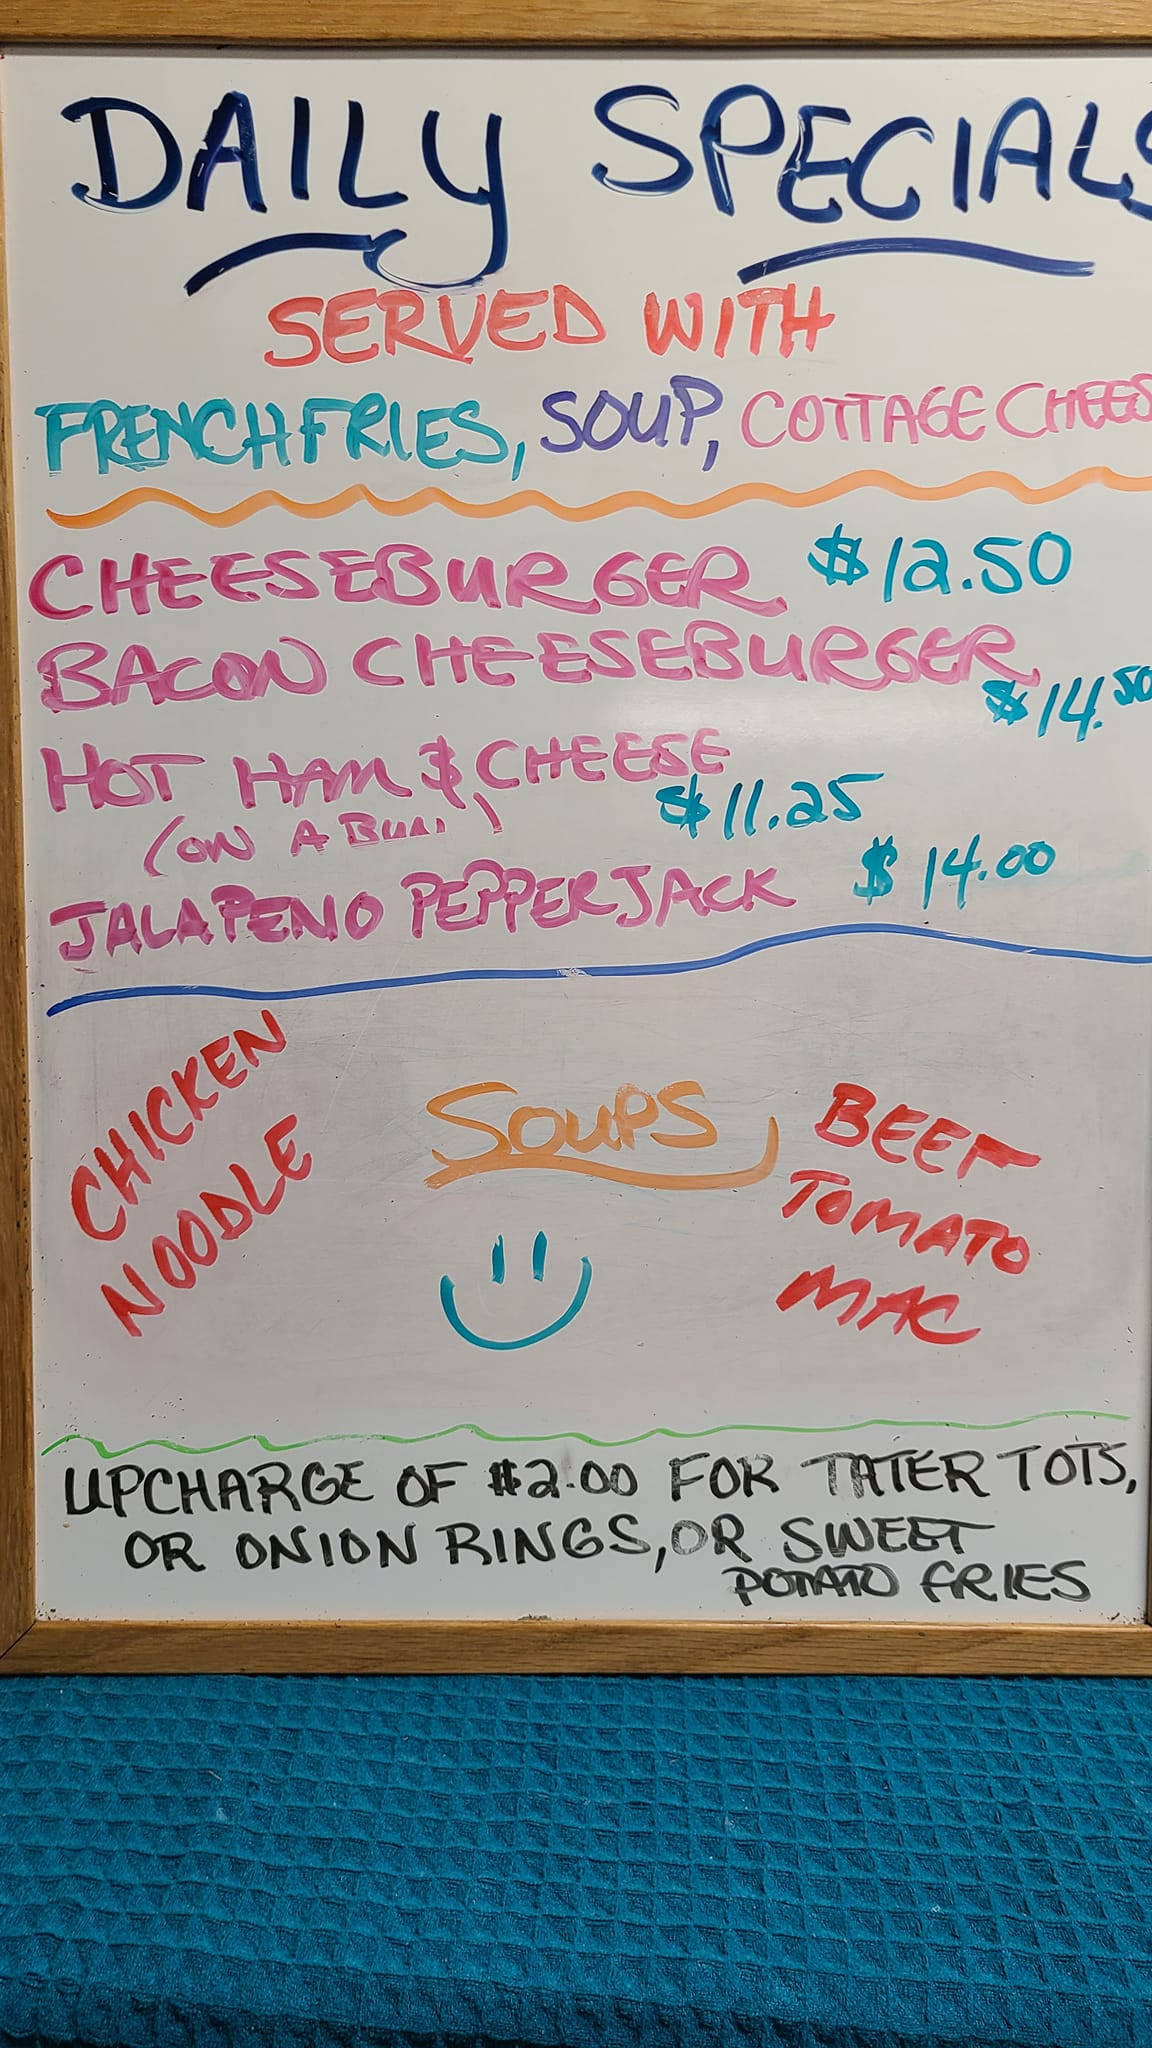 DAILY SPECIALS
SERVED WITH
FRENCH FRIES, SOUP, COTTAGE CHEES
CHEESEBURGER $12.50
BACON CHEESEBURGER
$14.50
HOT HAM & CHEESE
(ON A BUN) $11.25
JALAPENO PEPPER JACK $14.00
CHICKEN
NOODLE
SOUPS
BEEF
TOMATO
MAC
UPCHARGE OF $2.00 FOR TATER TOTS,
OR ONION RINGS, OR SWEET
POTATO FRIES